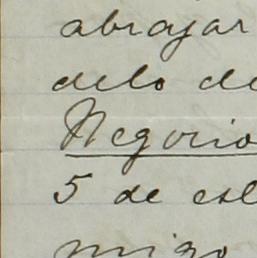 abrajar
delo de
Negocio
5 de est
migo